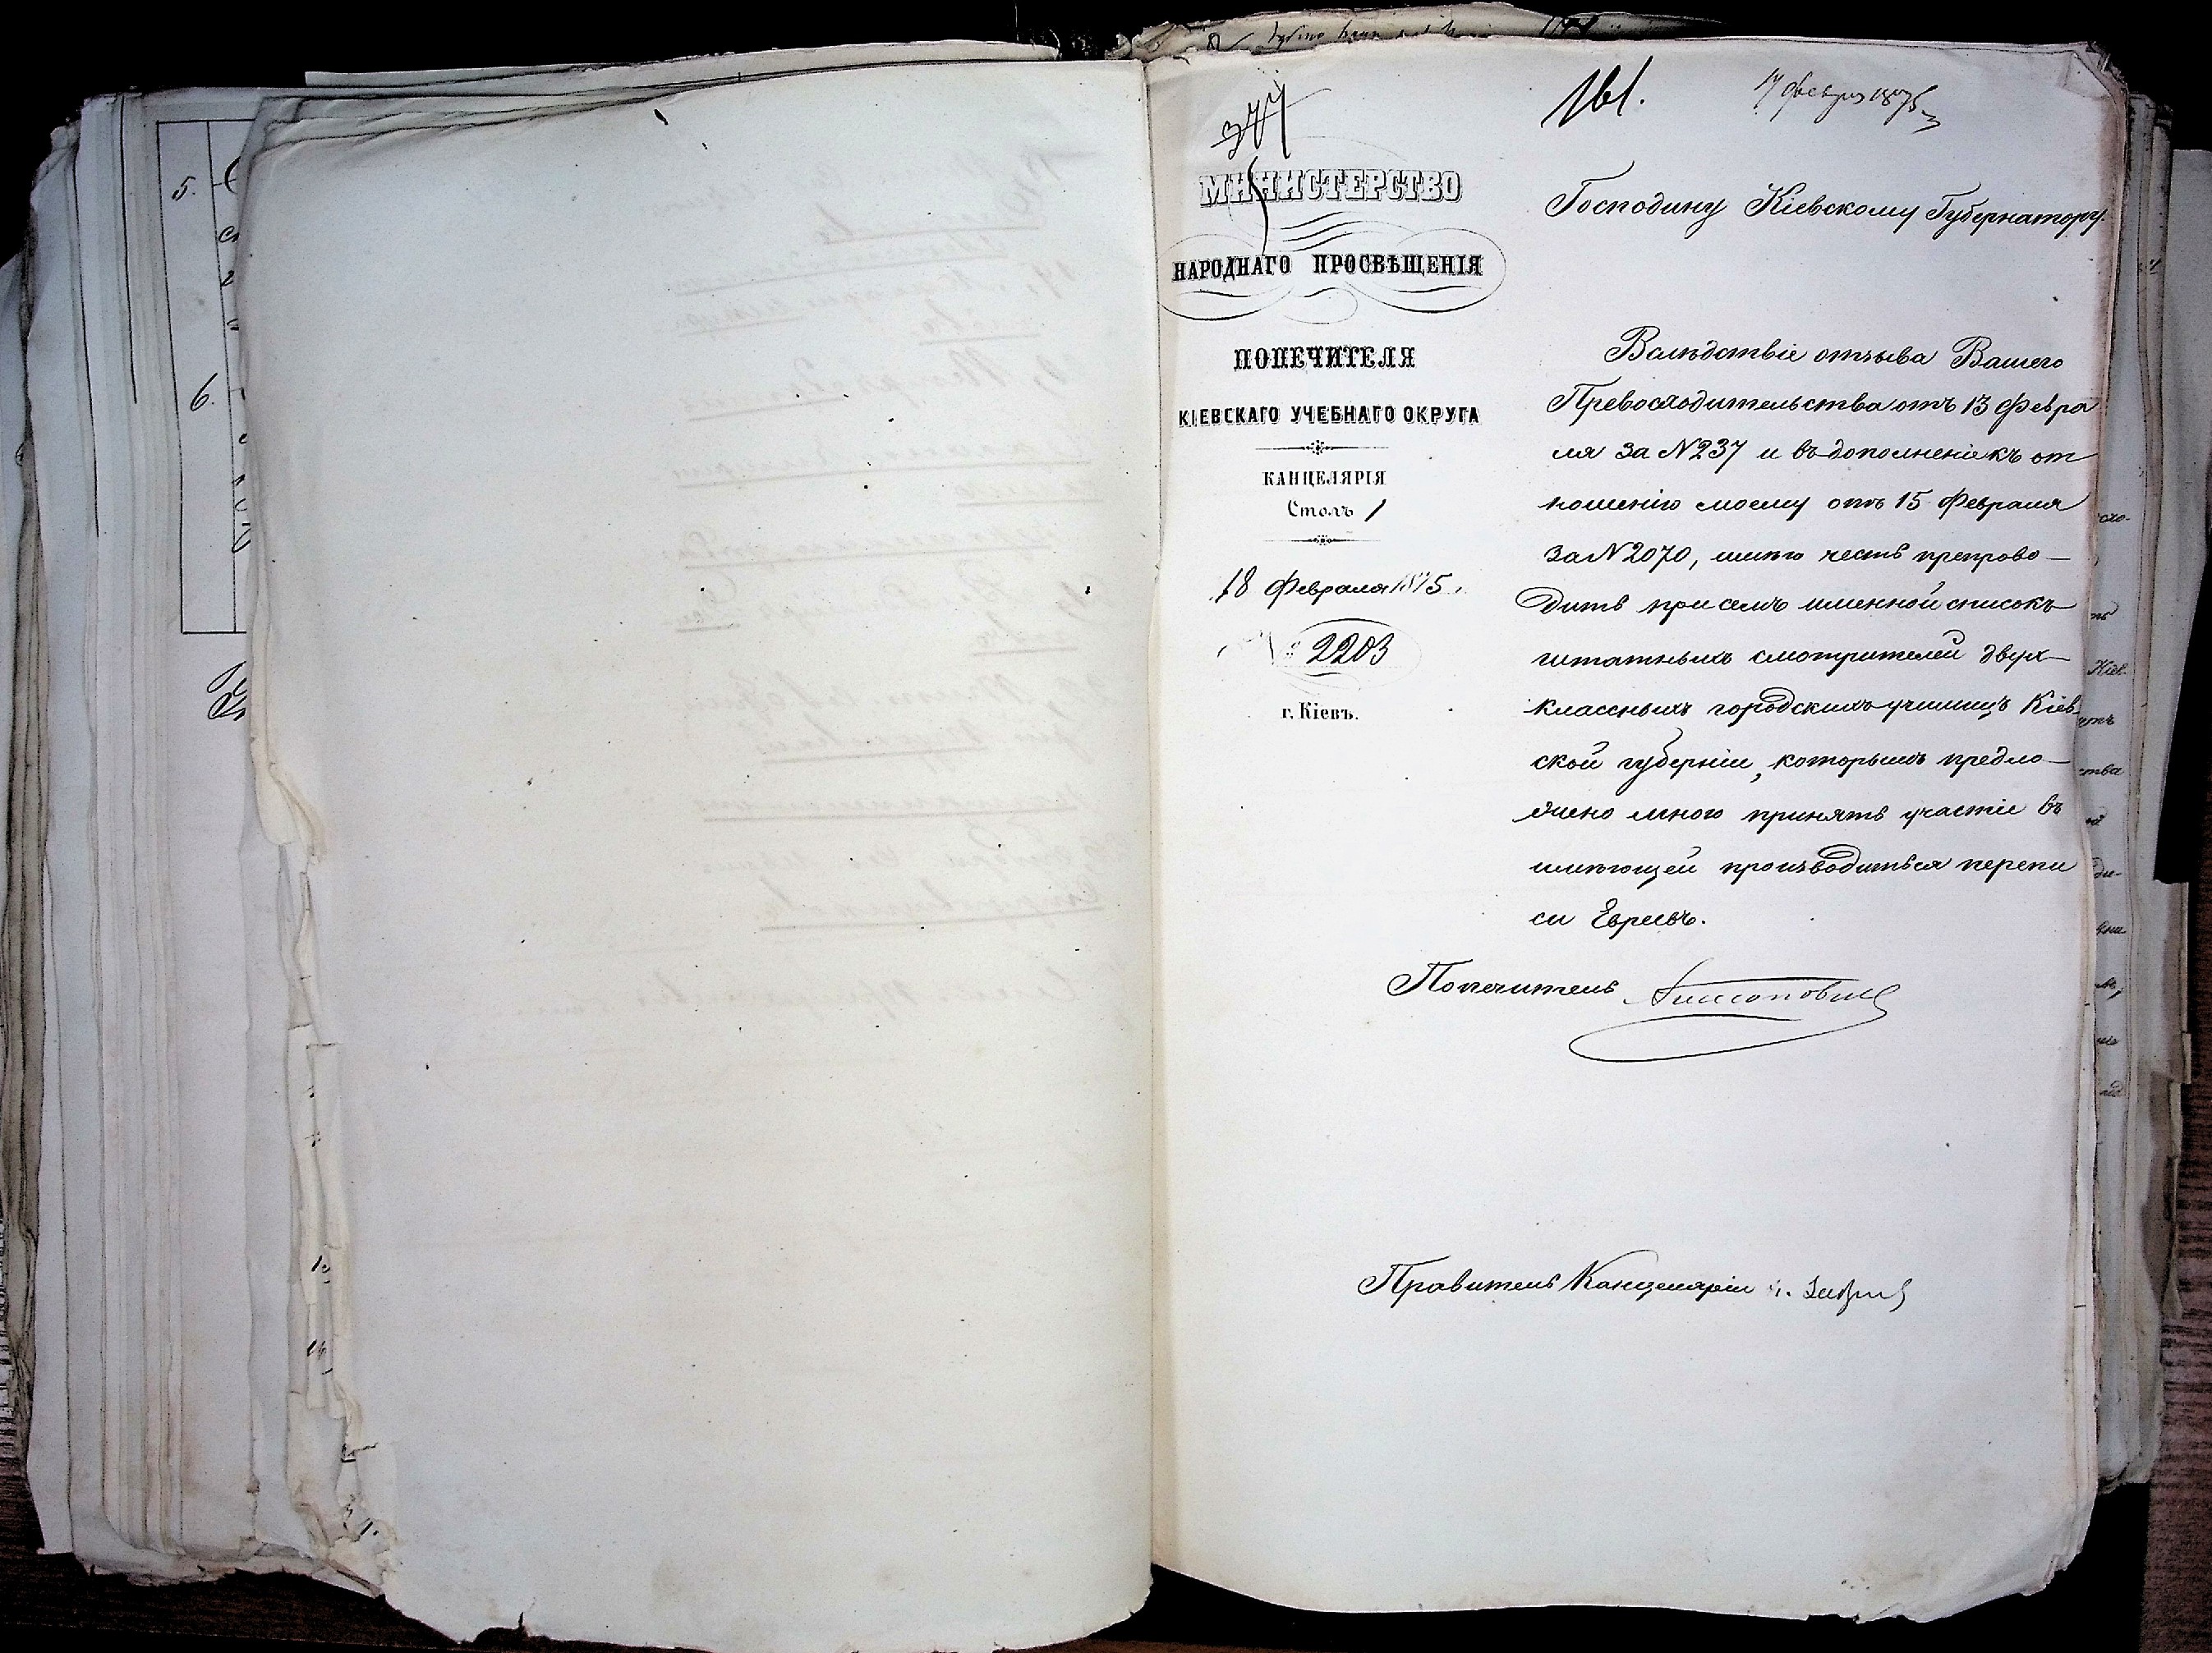 5.
6.
377
161.
МИНИСТЕРСТВО
НАРОДНАГО ПРОСВѢЩЕНІЯ
ПОПЕЧИТЕЛЯ
КІЕВСКАГО УЧЕБНАГО ОКРУГА
КАНЦЕЛЯРІЯ
Столъ 1
18 Февраля 1875 г.
№ 2203
г. Кіевъ.
Господину Кіевскому Губернатору.
Вслѣдствіе отзыва Вашего
Превосходительства отъ 13 Февра
ля за № 237 и въ дополненіе къ от
ношенію моему отъ 15 Февраля
за № 2070, имѣю честь препрово-
дить при семъ именной списокъ
штатныхъ смотрителей двух-
классныхъ городскихъ училищъ Кіев-
ской губерніи, которымъ предло-
жено мною принять участіе въ
имѣющей производиться перепи
си Евреевъ.
Попечитель Антоновичъ
Правитель Канцеляріи